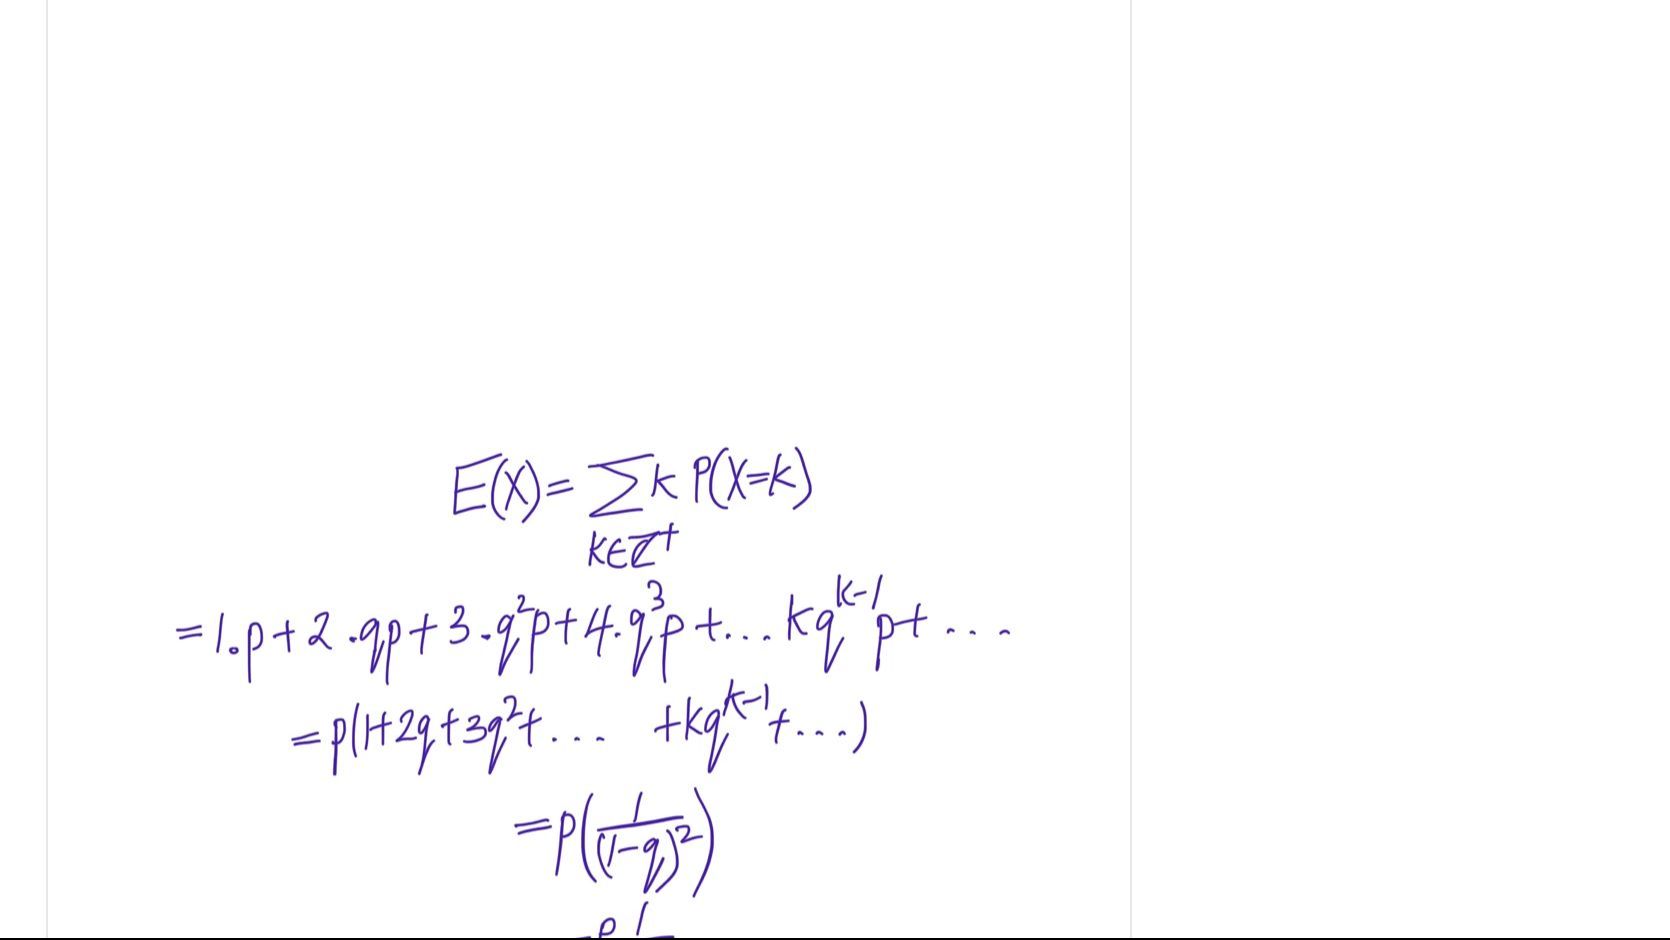 E(X)= ∑ k P(X=k)
k∈ℤ⁺
=1.p+2.qp+3.q²p+4.q³p+...kqᵏ⁻¹p+...
=p(1+2q+3q²+... +kqᵏ⁻¹+...)
=p(1/(1-q)²)